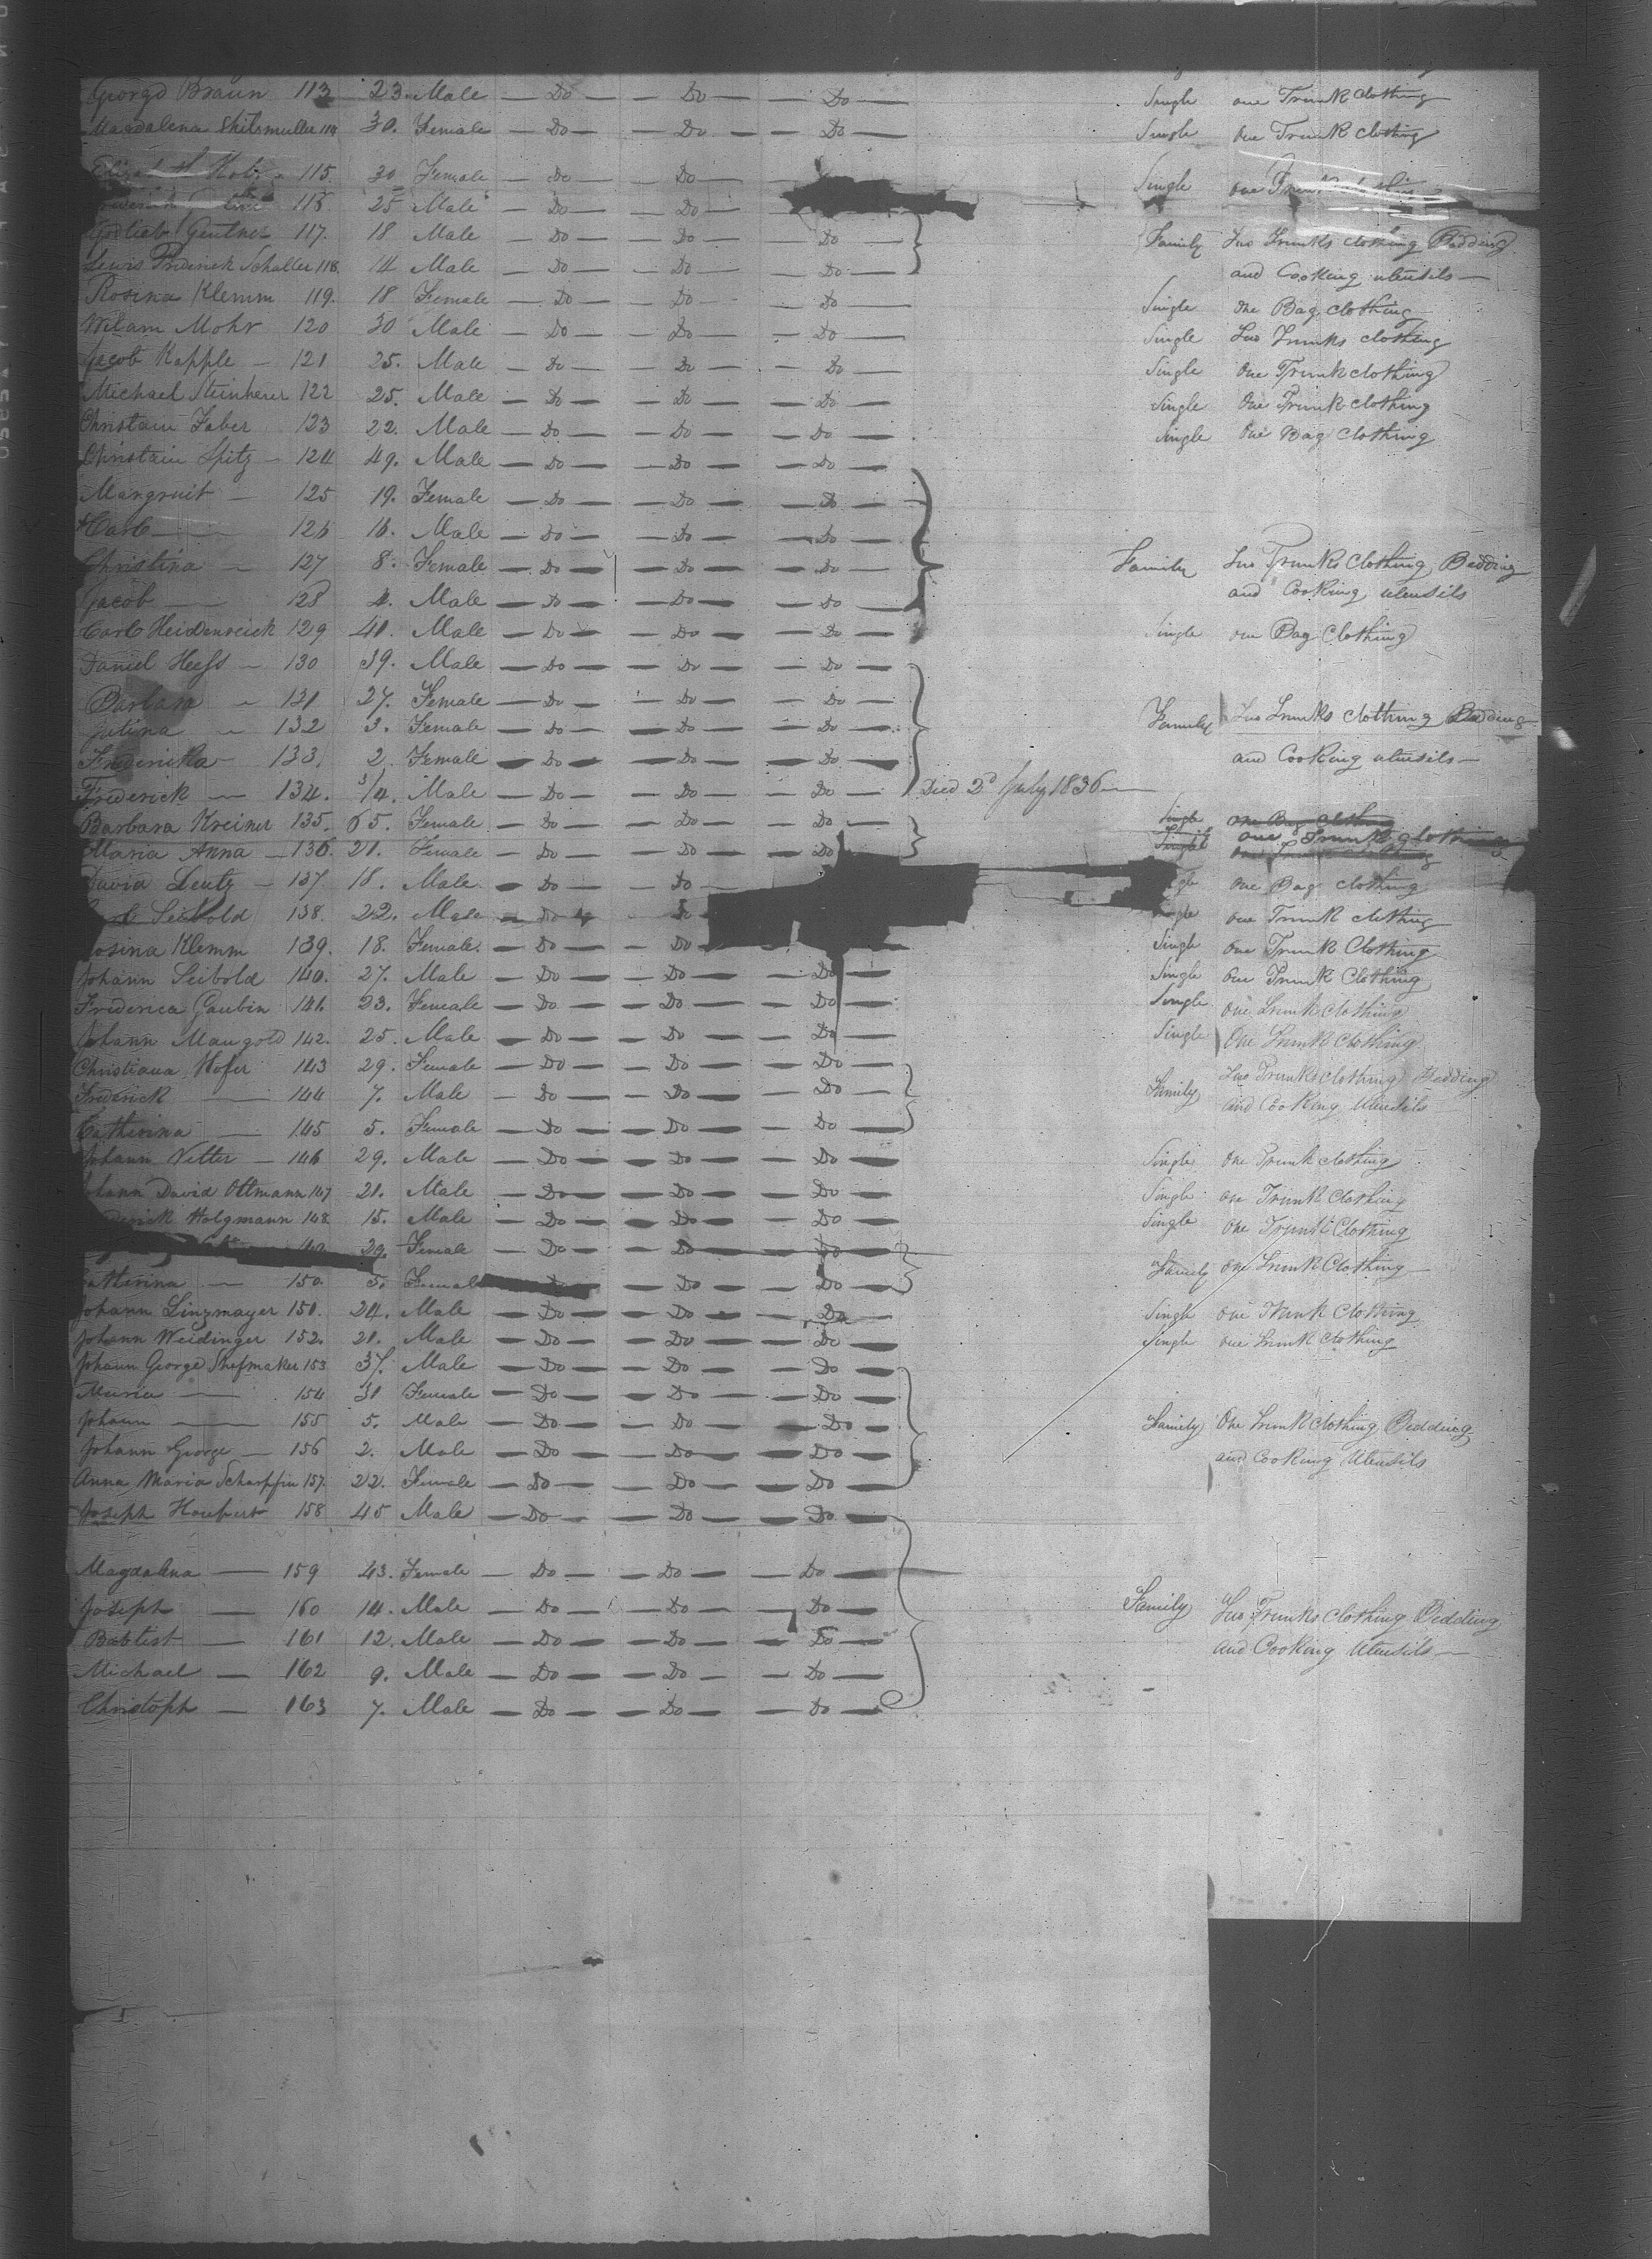 George Braun 113 23. Male — Do — — Do — — Do — Single one Trunk clothing
Magdalena 114 30. Female — Do — — Do — — Do — Single one Trunk Clothing
115 30 Female — Do — — Do — Single one Trunk
116 25 Male — Do — — Do —
Gotlieb Gentner 117. 18 Male — Do — — Do — Do — Family Two Trunks clothing Bedding
Lewis Frederick Schaller 118. 14 Male — Do — — Do — Do — and Cooking utensils —
Rosina Klemm 119. 18 Female — Do — — Do — — Do — Single One Bag clothing
Wilam Mohr 120 30 Male — Do — — Do — — Do — Single Two Trunks clothing
Jacob Kapple — 121 25. Male — Do — — Do — — Do — Single One Trunk clothing
Michael Steinherer 122 25. Male — Do — — Do — — Do — Single One Trunk clothing
Christain Faber 123 22. Male — Do — — Do — — Do — Single One Bag clothing
Christain Spitz — 124 49. Male — Do — — Do — — Do —
Margruit — 125 19. Female — Do — — Do — — Do —
Carl — 126 16. Male — Do — — Do — — Do —
Christina — 127 8. Female — Do — — Do — — Do — Family Two Trunks Clothing Bedding
Jacob — 128 4. Male — Do — — Do — — Do — and Cooking utensils
Carl Heidenreick 129 40. Male — Do — — Do — — Do — Single one Bag Clothing
Daniel Heess — 130 39. Male — Do — — Do — — Do —
Barbara — 131 27. Female — Do — — Do — — Do —
Jutina — 132 3. Female — Do — — Do — — Do — Family Two Trunks Clothing Bedding
Frederika — 133. 2. Female — Do — — Do — — Do — and Cooking utensils —
Frederick — 134. 3/4. Male — Do — — Do — — Do — Died 2d July 1836 —
Barbara Kreiner 135. 65. Female — Do — — Do — — Do — Single One Bag Clothing
Maria Anna — 136. 21. Female — Do — — Do — — Do Single One Trunk Clothing
David Leutz — 137. 18. Male — Do — — Do — One Bag clothing
Seibold 138. 22. Male — Do — one Trunk clothing
Rosina Klemm 139. 18. Female. — Do — — Do Single One Trunk Clothing
Johann Seibold 140. 27. Male — Do — — Do — — Do Single One Trunk Clothing
Frederica Gaubin 141. 23. Female — Do — — Do — — Do — Single one Trunk clothing
Johann Mangold 142. 25. Male — Do — — Do — — Do — Single One Trunk Clothing
Christiana Hofer 143 29. Female — Do — — Do — — Do — Two Trunks clothing Bedding
Frederick — 144 7. Male — Do — — Do — — Do — Family and Cooking Utensils
Catherina — 145 5. Female — Do — — Do — — Do —
Johann Vetter — 146 29. Male — Do — — Do — — Do — Single One Trunk clothing
Johann David Ottmann 147 21. Male — Do — — Do — — Do — Single one Trunk Clothing
Holzmann 148 15. Male — Do — — Do — — Do — Single One Trunk Clothing
29. Female — Do — — Do — — Do —
Catterina — 150. 5. Female — Do — — Do — Family one Trunk Clothing —
Johann Linzmayer 151. 24. Male — Do — — Do — — Do — Single one Trunk Clothing
Johann Weidinger 152. 21. Male — Do — — Do — — Do — Single one Trunk Clothing
Johann George Shefmaker 153 37. Male — Do — — Do — — Do —
Maria — 154 31 Female — Do — — Do — — Do —
Johann — 155 5. Male — Do — — Do — — Do — Family One Trunk clothing Bedding
Johann George — 156 2. Male — Do — — Do — — Do — and Cooking Utensils
Anna Maria Scharffin 157. 22. Female — Do — — Do — — Do —
Joseph Haubert 158 45 Male — Do — — Do — — Do —
Magdalina — 159 43. Female — Do — — Do — — Do —
Joseph — 160 14. Male — Do — — Do — — Do — Family Two Trunks Clothing Bedding
Babtist — 161 12. Male — Do — — Do — — Do — and Cooking Utensils —
Michael — 162 9. Male — Do — — Do — — Do —
Christoph — 163 7. Male — Do — — Do — — Do —